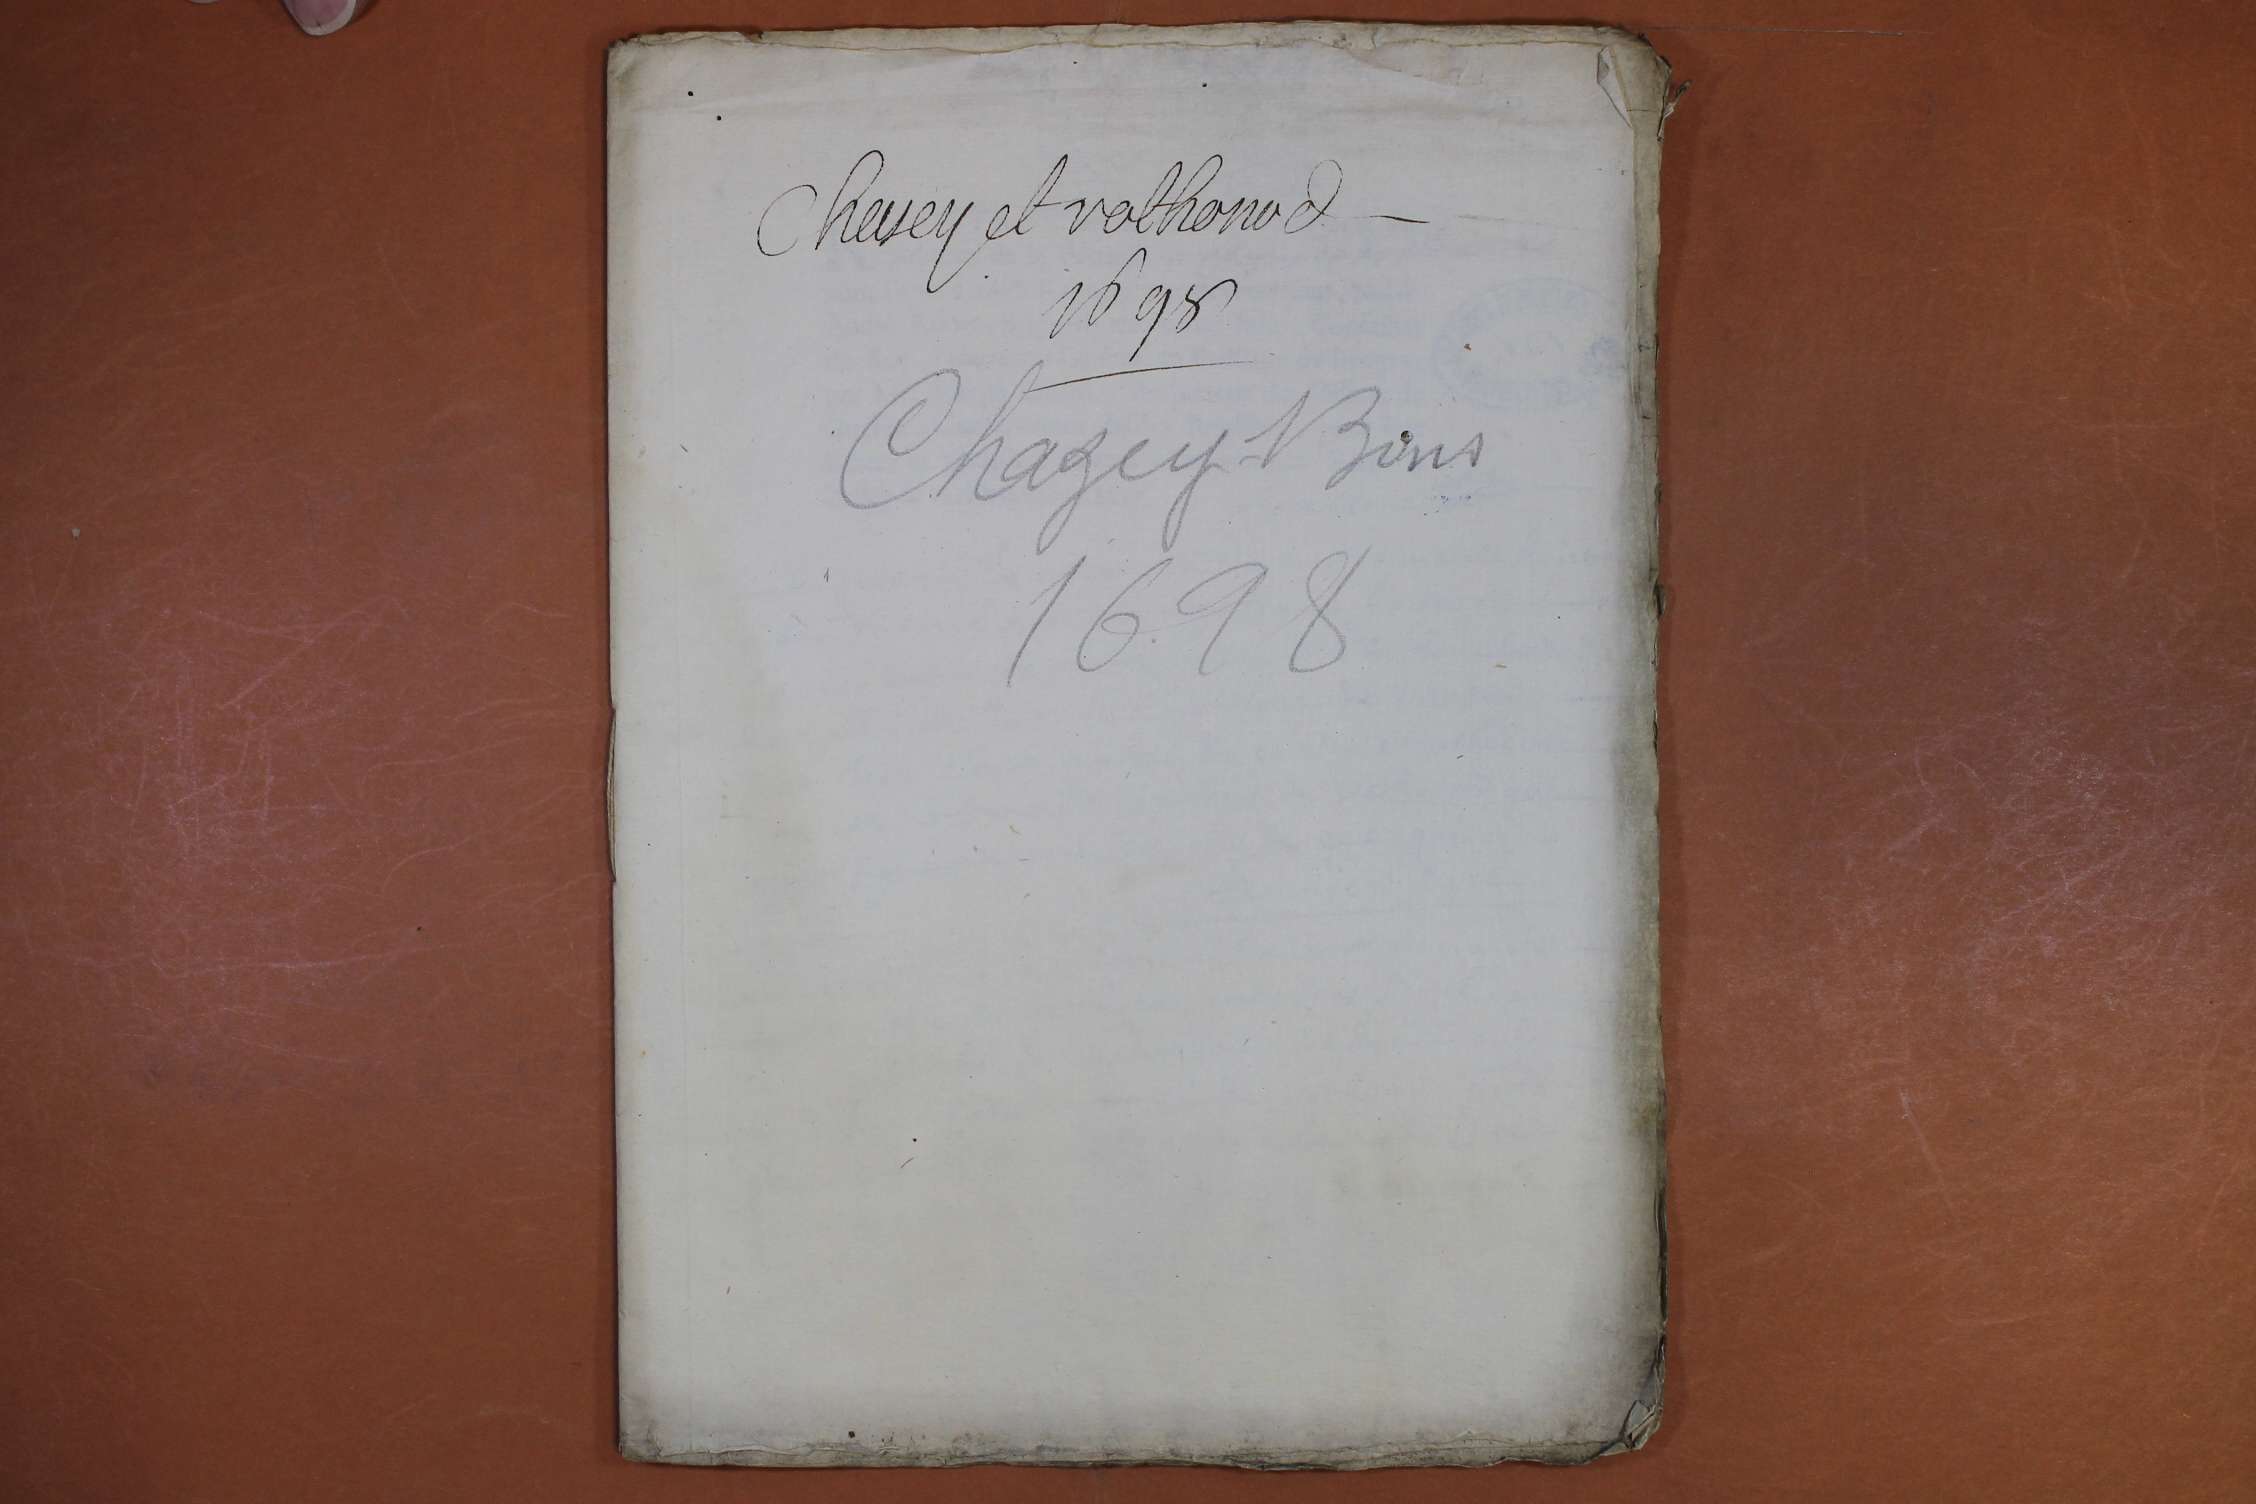 Chasey et rothonod —
1698
Chazey-Bons
1698